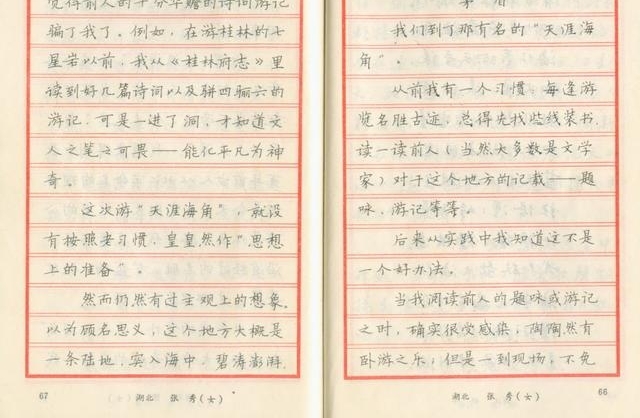 我们到了那有名的“天涯海
角”。
从前我有一个习惯：每逢游
览名胜古迹，总得先找些线装书，
读一读前人（当然大多数是文学
家）对于这个地方的记载——题
咏，游记等等。
后来从实践中我知道这不是
一个好办法。
当我阅读前人的题咏或游记
之时，确实很受感染，陶陶然有
卧游之乐；但是一到现场，不免
湖北 张 秀（女） 66
觉得前人的十分华赡的诗词游记
骗了我了。例如，在游桂林的七
星岩以前，我从《桂林府志》里
读到好几篇诗词以及骈四骊六的
游记，可是一进了洞，才知道文
人之笔之可畏——能化平凡为神
奇。
这次游“天涯海角”，就没
有按照老习惯，皇皇然作“思想
上的准备”。
然而仍然有过主观上的想象。
以为顾名思义，这个地方大概是
一条陆地，突入海中，碧涛澎湃，
67 湖北 张 秀（女）